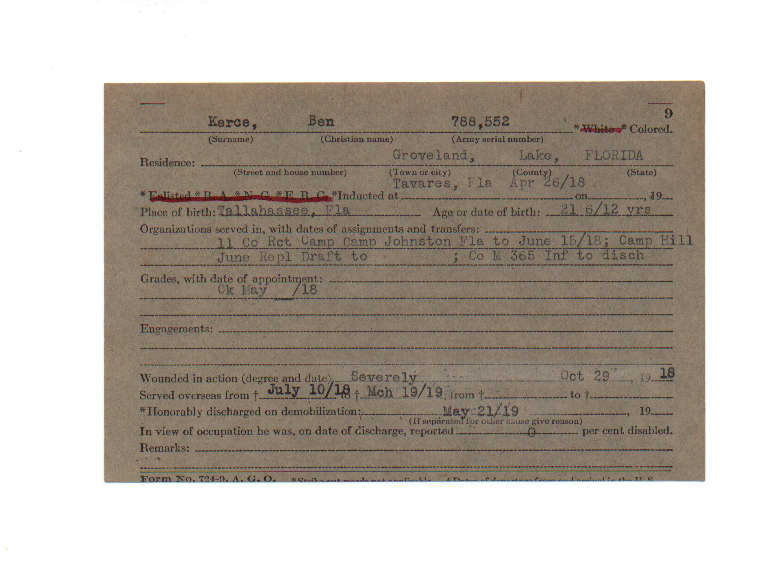 9
Kerce, Ben 788,552 *White* Colored.
(Surname) (Christian name) (Army serial number)
Groveland, Lake, FLORIDA
Residence:
(Street and house number) (Town or city) (County) (State)
Tavares, Fla Apr 26/18
*Enlisted *R. A. *N. G. *E. R. C. *Inducted at on , 19
Place of birth: Tallahassee, Fla Age or date of birth: 21 6/12 yrs
Organizations served in, with dates of assignments and transfers:
11 Co Rct Camp Camp Johnston Fla to June 15/18; Camp Hill
June Repl Draft to ; Co M 365 Inf to disch
Grades, with date of appointment:
Ck May /18
Engagements:
Wounded in action (degree and date) Severely Oct 29 , 19 18
Served overseas from † July 10/18 to † Mch 19/19, from † to †
*Honorably discharged on demobilization: May 21/19 , 19
(If separated for other cause give reason)
In view of occupation he was, on date of discharge, reported 0 per cent disabled.
Remarks:
Form No. 724-9, A. G. O.